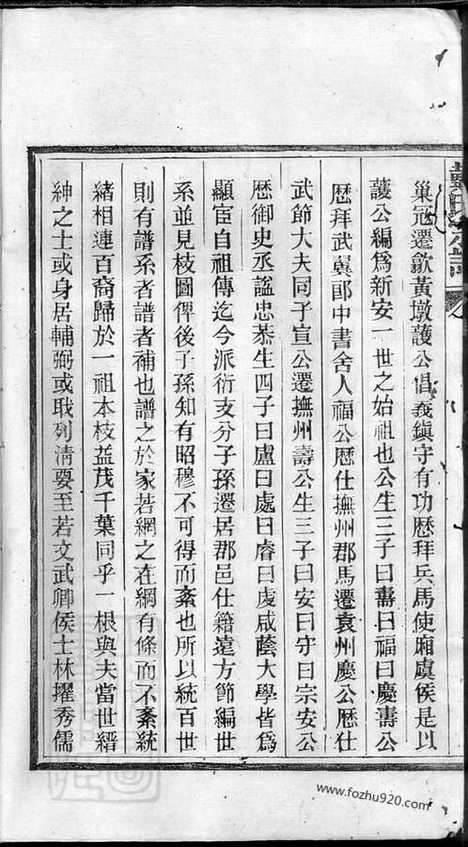 巢寇遷歙黃墩護公倡義鎮守有功歷拜兵馬使廂虞侯是以
護公編為新安一世之始祖也公生三子曰壽曰福曰慶壽公
歷拜武冀郎中書舍人福公歷仕撫州郡馬遷袁州慶公歷仕
武節大夫同子宣公遷撫州壽公生三子曰安曰守曰宗安公
歷御史丞謚忠恭生四子曰盧曰處曰睿曰虔咸蔭大學皆為
顯臣自祖傳迄今派衍支分子孫遷居郡邑仕籍遠方節編世
系並見枝圖俾後子孫知有昭穆不可得而紊也所以統百世
則有譜系者譜者補也譜之於家若網之在綱有條而不紊統
緒相連百裔歸於一祖本枝益茂千葉同乎一根與夫當世縉
紳之士或身居輔弼或職列清要至若文武卿侯士林擢秀儒
www.fozhu920.com